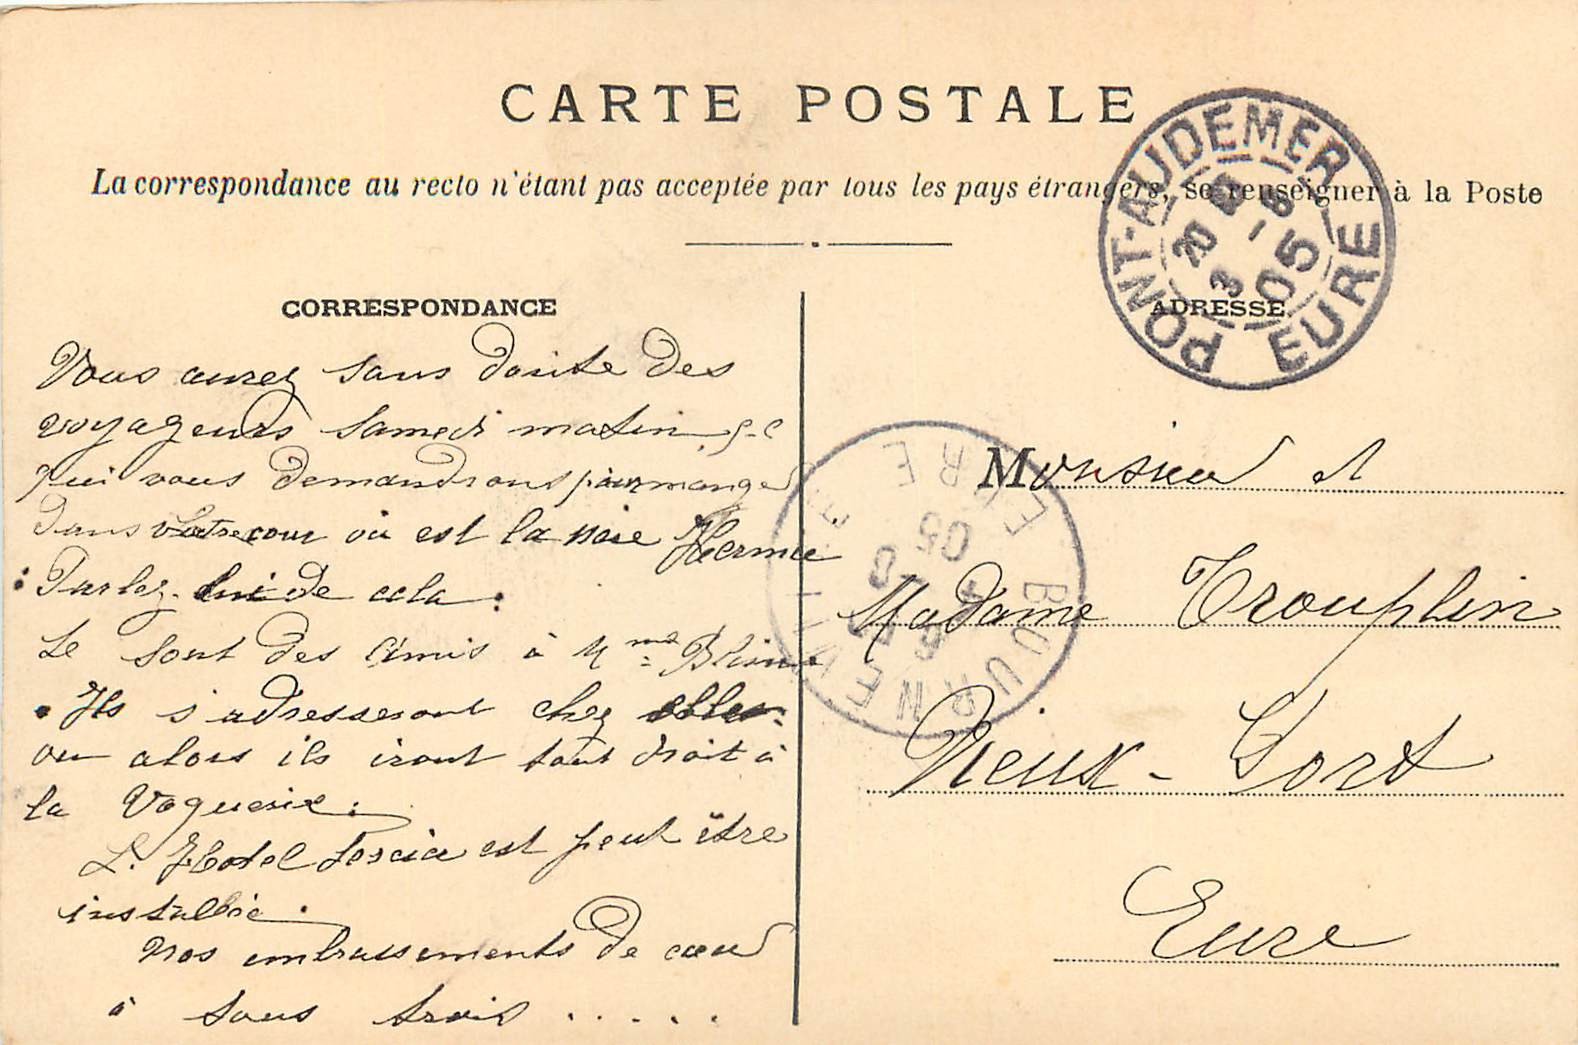 CARTE POSTALE
La correspondance au recto n'étant pas acceptée par tous les pays étrangers, se renseigner à la Poste
PONT-AUDEMER
EURE
20
3 -8
05
CORRESPONDANCE
Vous aurez sans doute des
voyageurs samedi matin
qui vous demandrons pour manger
dans votre cour où est la
Parlez lui de cela.
Ce sont des amis à Mme
Ils s'adresseront chez
ou alors ils iront tout droit à
la
L'Hotel est peut être
installée.
Nos embrassements de cœur
à tous trois .....
ADRESSE
BOURNEVILLE
EURE
05
Monsieur et
Madame Trouplin
Vieux-Port
Eure